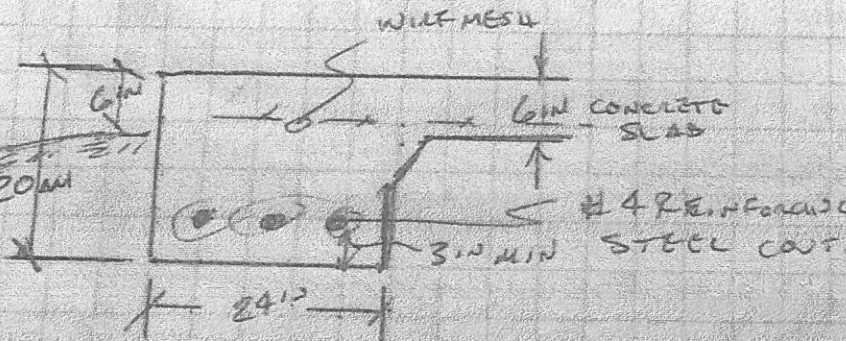 WIRE MESH
6IN
6IN CONCRETE
SLAB
20IN
#4 REINFORCING
STEEL CONT.
3IN MIN
24IN